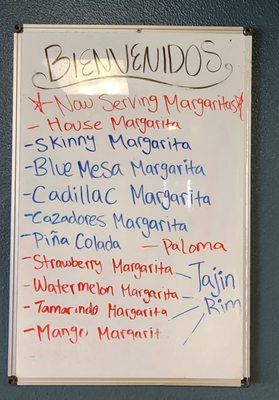 BIENVENIDOS
* Now Serving Margaritas *
- House Margarita
- Skinny Margarita
- Blue Mesa Margarita
- Cadillac Margarita
- Cazadores Margarita
- Piña Colada - Paloma
- Strawberry Margarita
- Watermelon Margarita
- Tamarindo Margarita
- Mango Margarit
Tajin
Rim